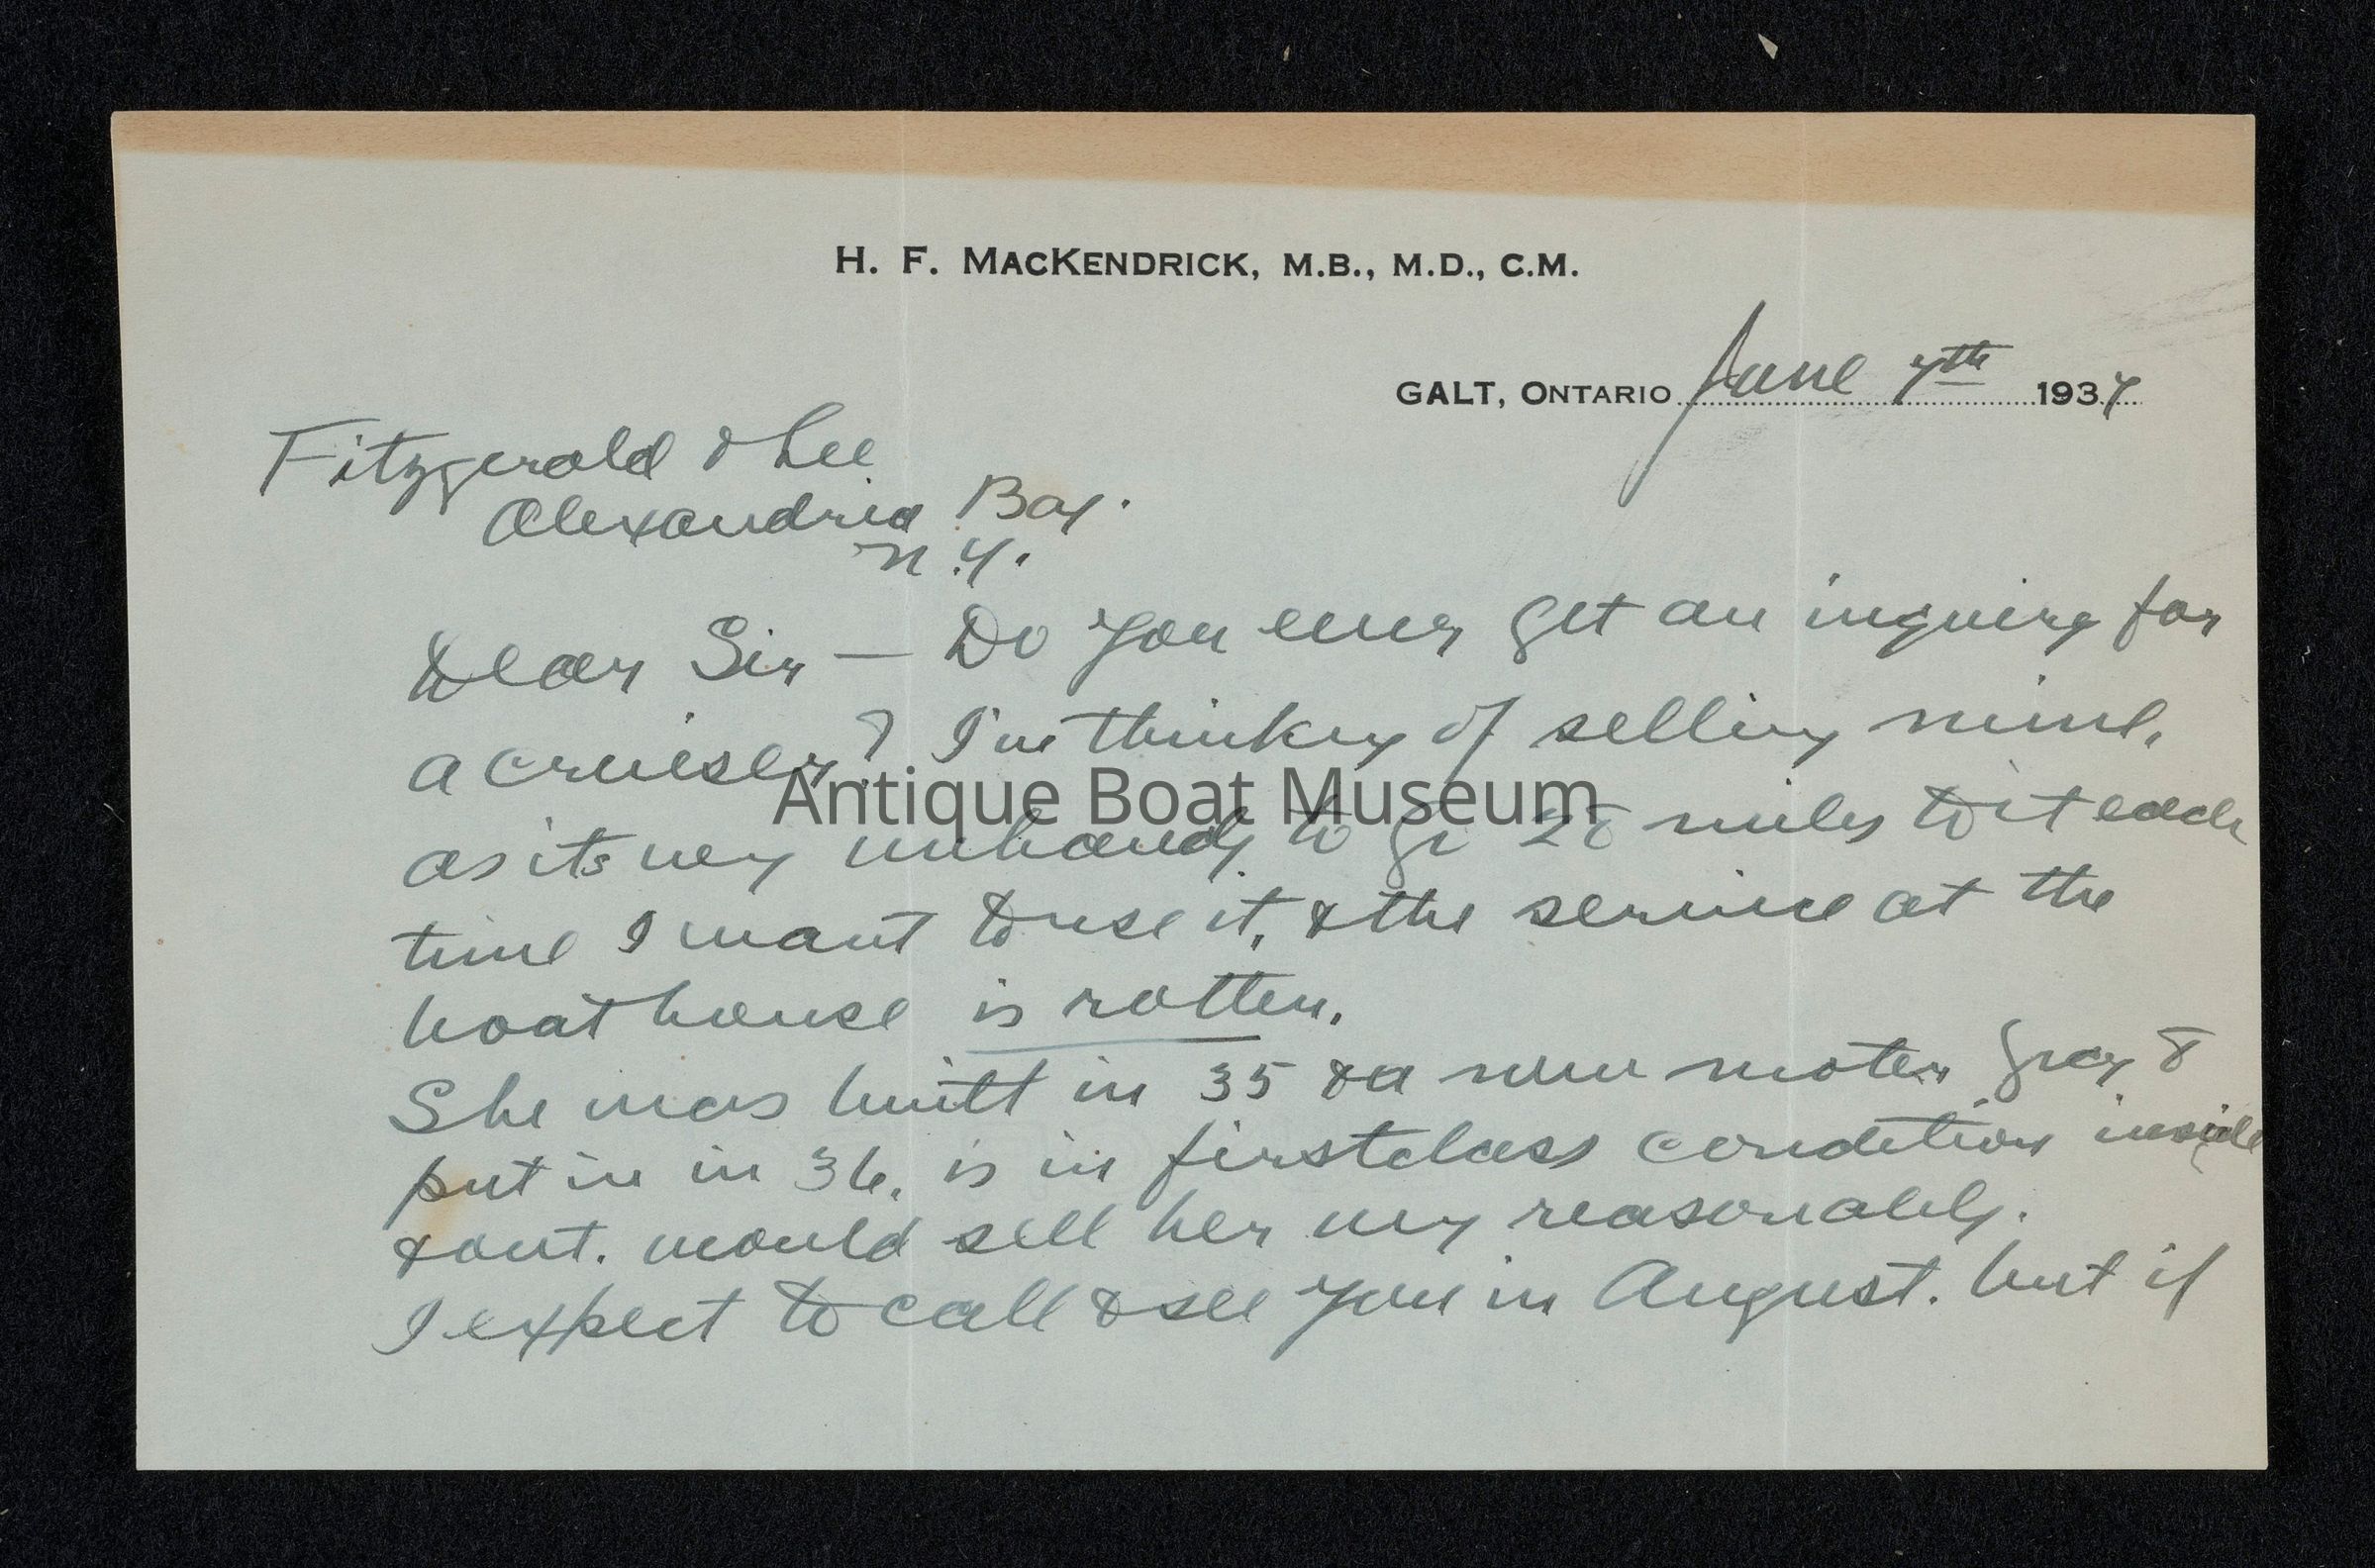 H. F. MACKENDRICK, M.B., M.D., C.M.
GALT, ONTARIO June 7th 1937
Fitzgerald & Lee
Alexandria Bay.
N.Y.
Dear Sir — Do you ever get an inquiry for
a cruiser? I'm thinking of selling mine,
Antique Boat Museum
as its very unhandy to go miles to it each
time I want to use it, & the service at the
boat house is rotten.
She was built in 35 & a new motor Gray 8
put in in 36. is in firstclass condition inside
& out. would sell her very reasonably.
I expect to call & see you in August. but if